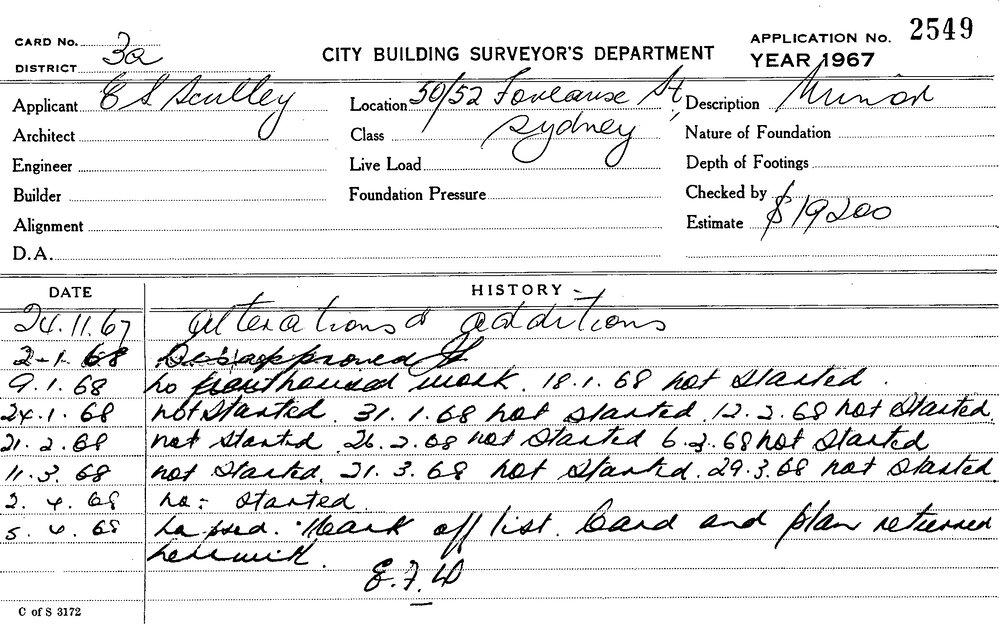 CARD No. 3a
DISTRICT
CITY BUILDING SURVEYOR'S DEPARTMENT
APPLICATION No. 2549
YEAR 1967
Applicant E S Sculley
Location 50/52 Foveaux St, Sydney
Description Minor
Architect
Class
Nature of Foundation
Engineer
Live Load
Depth of Footings
Builder
Foundation Pressure
Checked by
Alignment
Estimate $19200
D.A.
DATE HISTORY
24.11.67 alterations & additions
2-1.68 Disapproved
9.1.68 no unauthorised work. 18.1.68 not started.
24.1.68 not started. 31.1.68 not started. 12.2.68 not started.
21.2.68 not started. 26.2.68 not started 6.3.68 not started
11.3.68 not started. 21.3.68 not started. 29.3.68 not started
2.4.68 no: started.
5.4.68 Lapsed. Mark off list. Card and plan returned
herewith.
C of S 3172